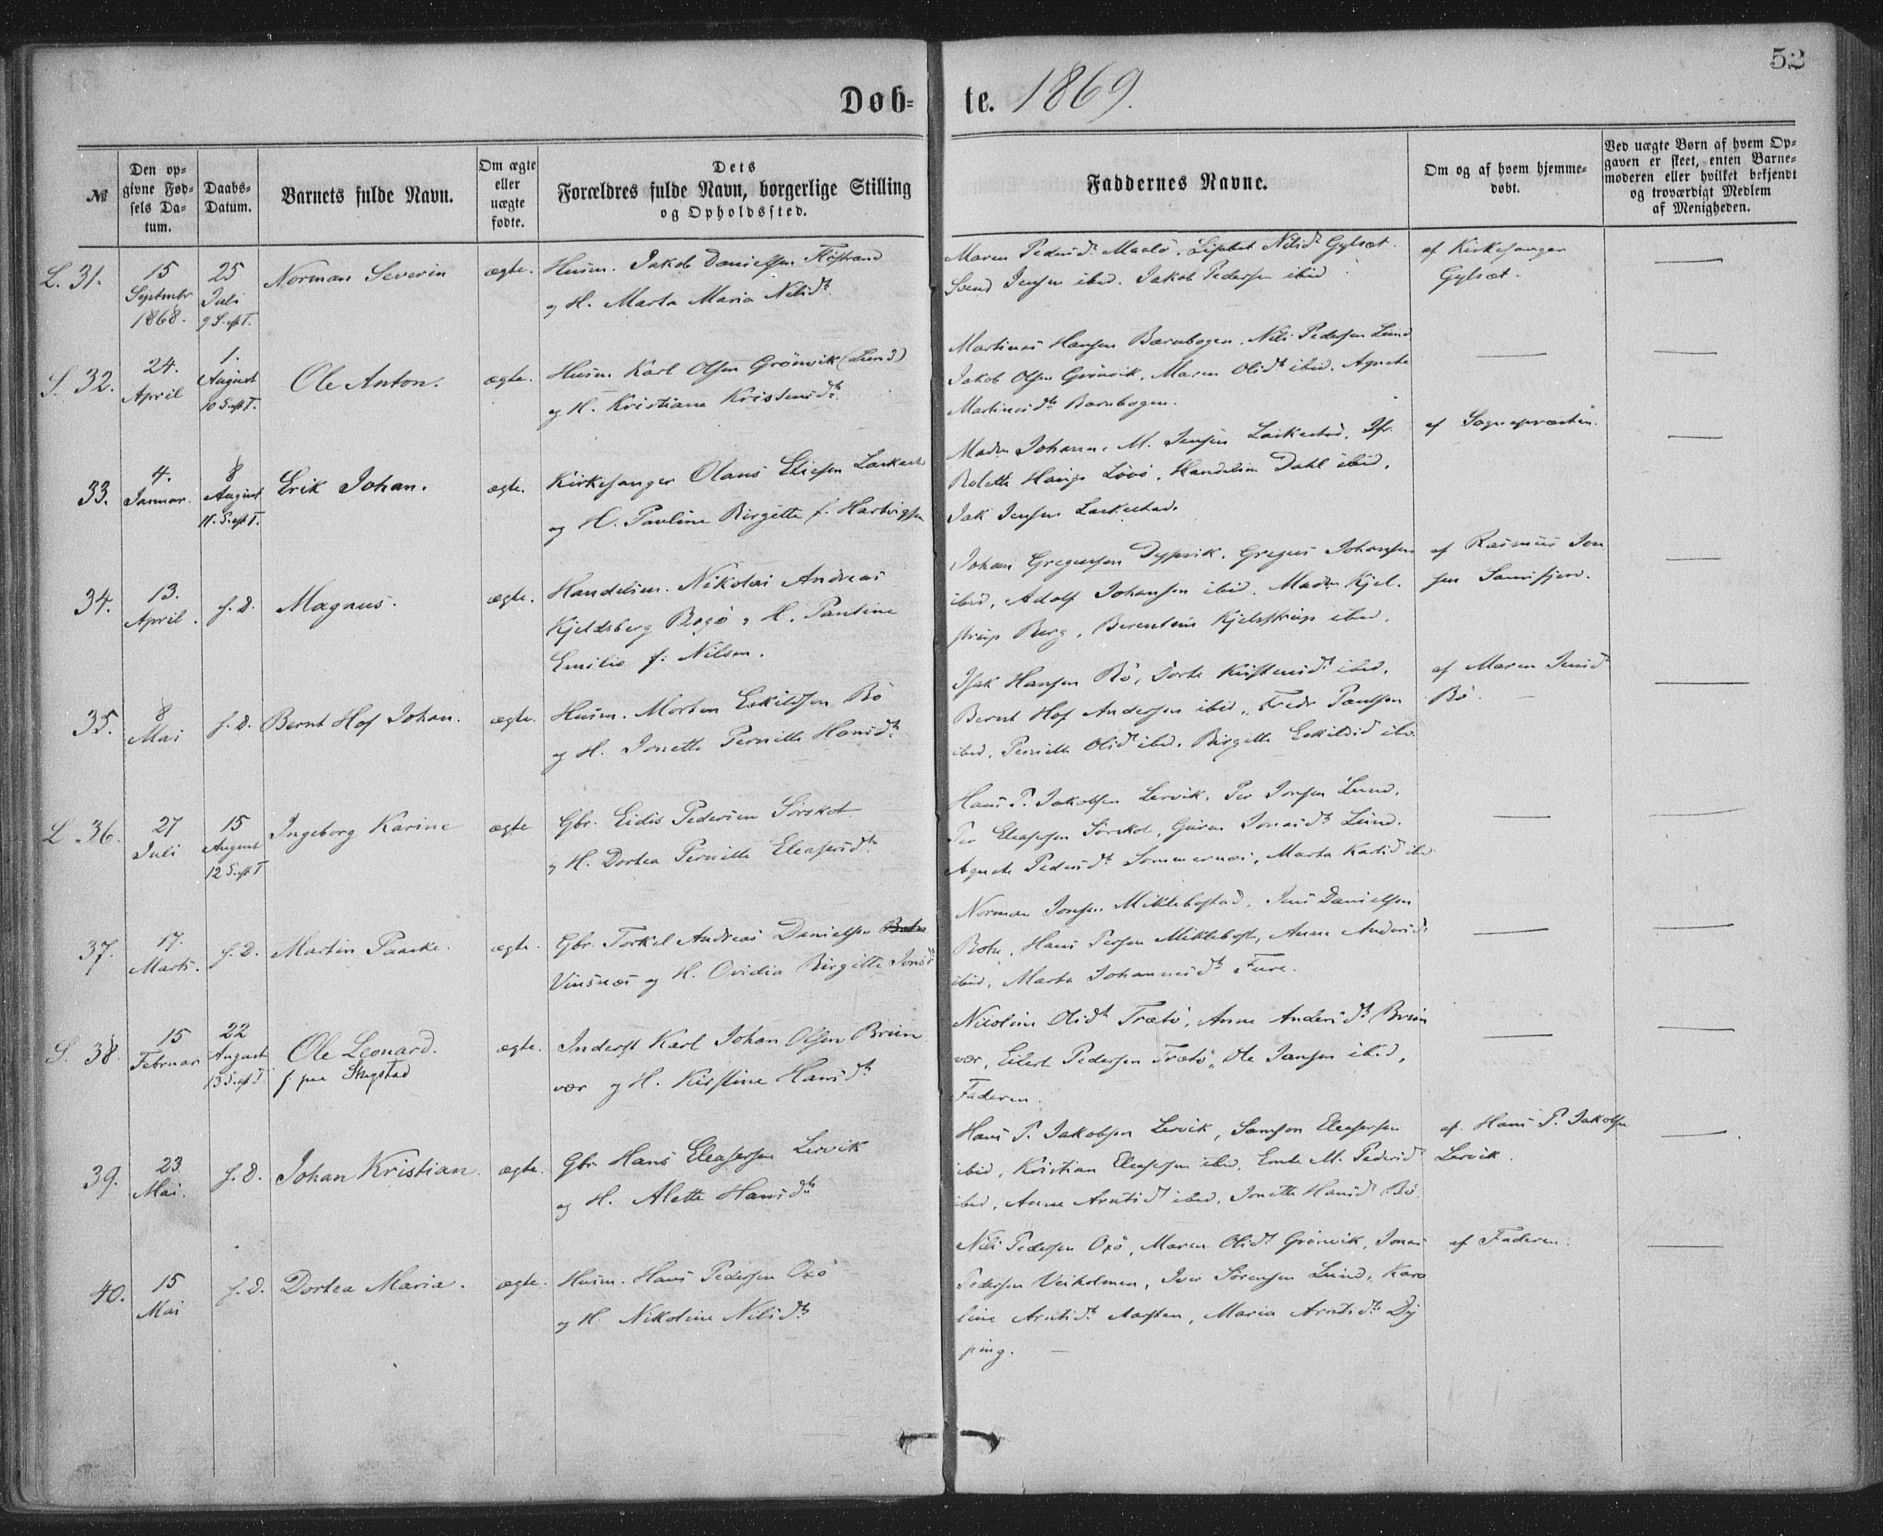 52
Døb-
te. 1869.
№
Den op-
givne Fød-
sels Da-
tum.
Daabs-
Datum.
Barnets fulde Navn.
Om ægte
eller
uægte
fødte.
Dets
Forældres fulde Navn, borgerlige Stilling
og Opholdssted.
Faddernes Navne.
Om og af hvem hjemme-
døbt.
Ved uægte Børn af hvem Op-
gaven er skeet, enten Barne-
moderen eller hvilket bekjendt
og troværdigt Medlem
af Menigheden.
L. 31.
15
Septmbr
1868.
25
Juli
9 S. eft T.
Norman Severin
ægte.
Husm. Jakob Danielsen
og H. Marta Maria Nilsdt.
Maren Pedersdt Maalö, Lisbet Nilsdt Gylset.
Svend Jensen ibid. Jakob Pedersen ibid
af Kirkesanger
Gylset.
S. 32.
24.
April
1.
August
10 S. eft T.
Ole Anton.
ægte.
Husm. Karl Olsen Grönvik (Lund)
og H. Kristiane Kristensdt.
Martinus Hansen Barnbogen. Nils Pedersen Lund
Jakob Olsen Grönvik, Maren Olsdt ibid. Agnete
Martinusdt. Barnbogen.
33.
4.
Januar.
8
August
11. S. eft T.
Erik Johan.
ægte.
Kirkesanger Olaus Eliesen
og H. Pauline Birgitte f. Hartvigsen
Madm Johanne M. Jensen Laskestad, Jfr.
Bolette Lövö, Handelsm Dahl ibid,
Jak Jensen Laskestad.
af Sognepræsten.
34.
13.
April.
s. D.
Magnus.
ægte.
Handelsm. Nikolai Andreas
Kjeldsberg Bogö og H. Pauline
Emilie f: Nilsen.
Johan Gregusen Dypvik. Gregus Johansen
ibid, Adolf Johansen ibid. Madm Kjel-
strup Berg, Kjelstrup ibid.
af Rasmus Jen
sen
35.
8
Mai
s. D.
Bernt Hof Johan.
ægte.
Husm. Morten Eskildsen Bö
og H. Jonette Pernille Hansdt.
Isak Hansen Bö, Dorte Kristensdt ibid.
Bernt Hof Andersen ibid, Fredr Paulsen
ibid, Pernille Olsdt ibid, Birgitte Eskildsd ibid
af Maren Jensdt
Bö.
L 36.
27
Juli
15
August
12 S. eft T
Ingeborg Karine
ægte
Gbr. Eidis Pedersen Sörskot
og H. Dortea Pernille Eleasersdt.
Hans P. Jakobsen Lervik, Per Jonsen Lund,
Per Eleasersen Sörskot, Guren Jonasdt Lund.
Agnete Pedersdt Sommernæs, Marta Karlsd ibid
37.
17.
Marts.
s. D.
Martin Paaske.
ægte.
Gbr. Torkil Andreas Danielsen
Vinsnæs og H. Ovidia Birgitte Jonsdt
Norman Jonsen Miklebostad, Jens Danielsen
Botn, Hans Persen Miklebost, Anne Andersdt
ibid, Marta Johannesdt Fure.
S. 38
15
Februar
22
August
13 S. eft T.
Ole Leonard.
f. paa Skogstad
ægte.
Inderst Karl Johan Olsen Bruen
vær og H. Kirstine Hansdt
Nikoline Olsdt Trætö, Anne Andersdt Bruen
vær, Eilert Pedersen Trætö, Ole Jansen ibid,
Faderen.
39.
23.
Mai.
s. D.
Johan Kristian.
ægte.
Gbr. Hans Eleasersen Lervik
og H. Alette Hansdt.
Hans P. Jakobsen Lervik, Samson Eleasersen
ibid, Kristian Eleasersen ibid, M. Pedersdt
ibid, Anne Arntsdt ibid, Jonette Hansdt Bö.
af Hans P. Jakobsen
Lervik.
40.
15
Mai
s. D.
Dortea Maria.
ægte.
Husm. Hans Pedersen Oxö
og H. Nikoline Nilsdt.
Nils Pedersen Oxö, Maren Olsdt Grönvik, Jonas
Pedersen Veiholmen, Iver Sörensen Lund, Karo
line Arntsdt Aasten, Maria Arntsdt Dy
ping.
af Faderen.